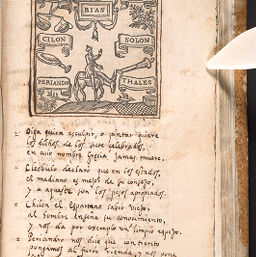 BIAS
CILON
SOLON
PERIANDO
THALES
Oiga quien esculpir, o pintar quiere
los dichos de los siete celebrados,
en cuio nombre Grecia jamas muere.
Cleobulo declaro que en los estados,
el mediano es mejor de su consejo,
y a aqueste son los pesos apropiados.
Chilon el Espartano sabio viejo,
al hombre enseña su conocimiento,
y nos da por exemplo un limpio espejo.
Periandro nos dice que con tiento
pongamos al furor rienda, y nos pone